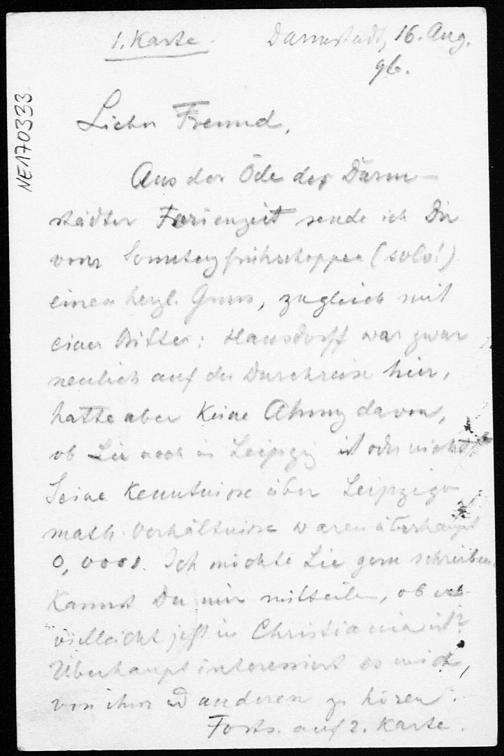 1. Karte.
Darmstadt, 16. Aug.
96.
NE170333
Lieber Freund,
Aus der Öde der Darm-
städter Ferienzeit sende ich Dir
vom Sonntagfrühschoppen (solo!)
einen herzl. Gruss, zugleich mit
einer Bitte: Hausdorff war zwar
neulich auf der Durchreise hier,
hatte aber keine Ahnung davon,
ob Lie noch in Leipzig ist oder nicht.
Seine Kenntnisse über Leipziger
math. Verhältnisse waren überhaupt
0,0001. Ich möchte Lie gern schreiben.
Kannst Du mir mitteilen, ob er
vielleicht jetzt in Christiania ist?
Überhaupt interessiert es mich,
von ihm und anderen zu hören.
Forts. auf 2. Karte.